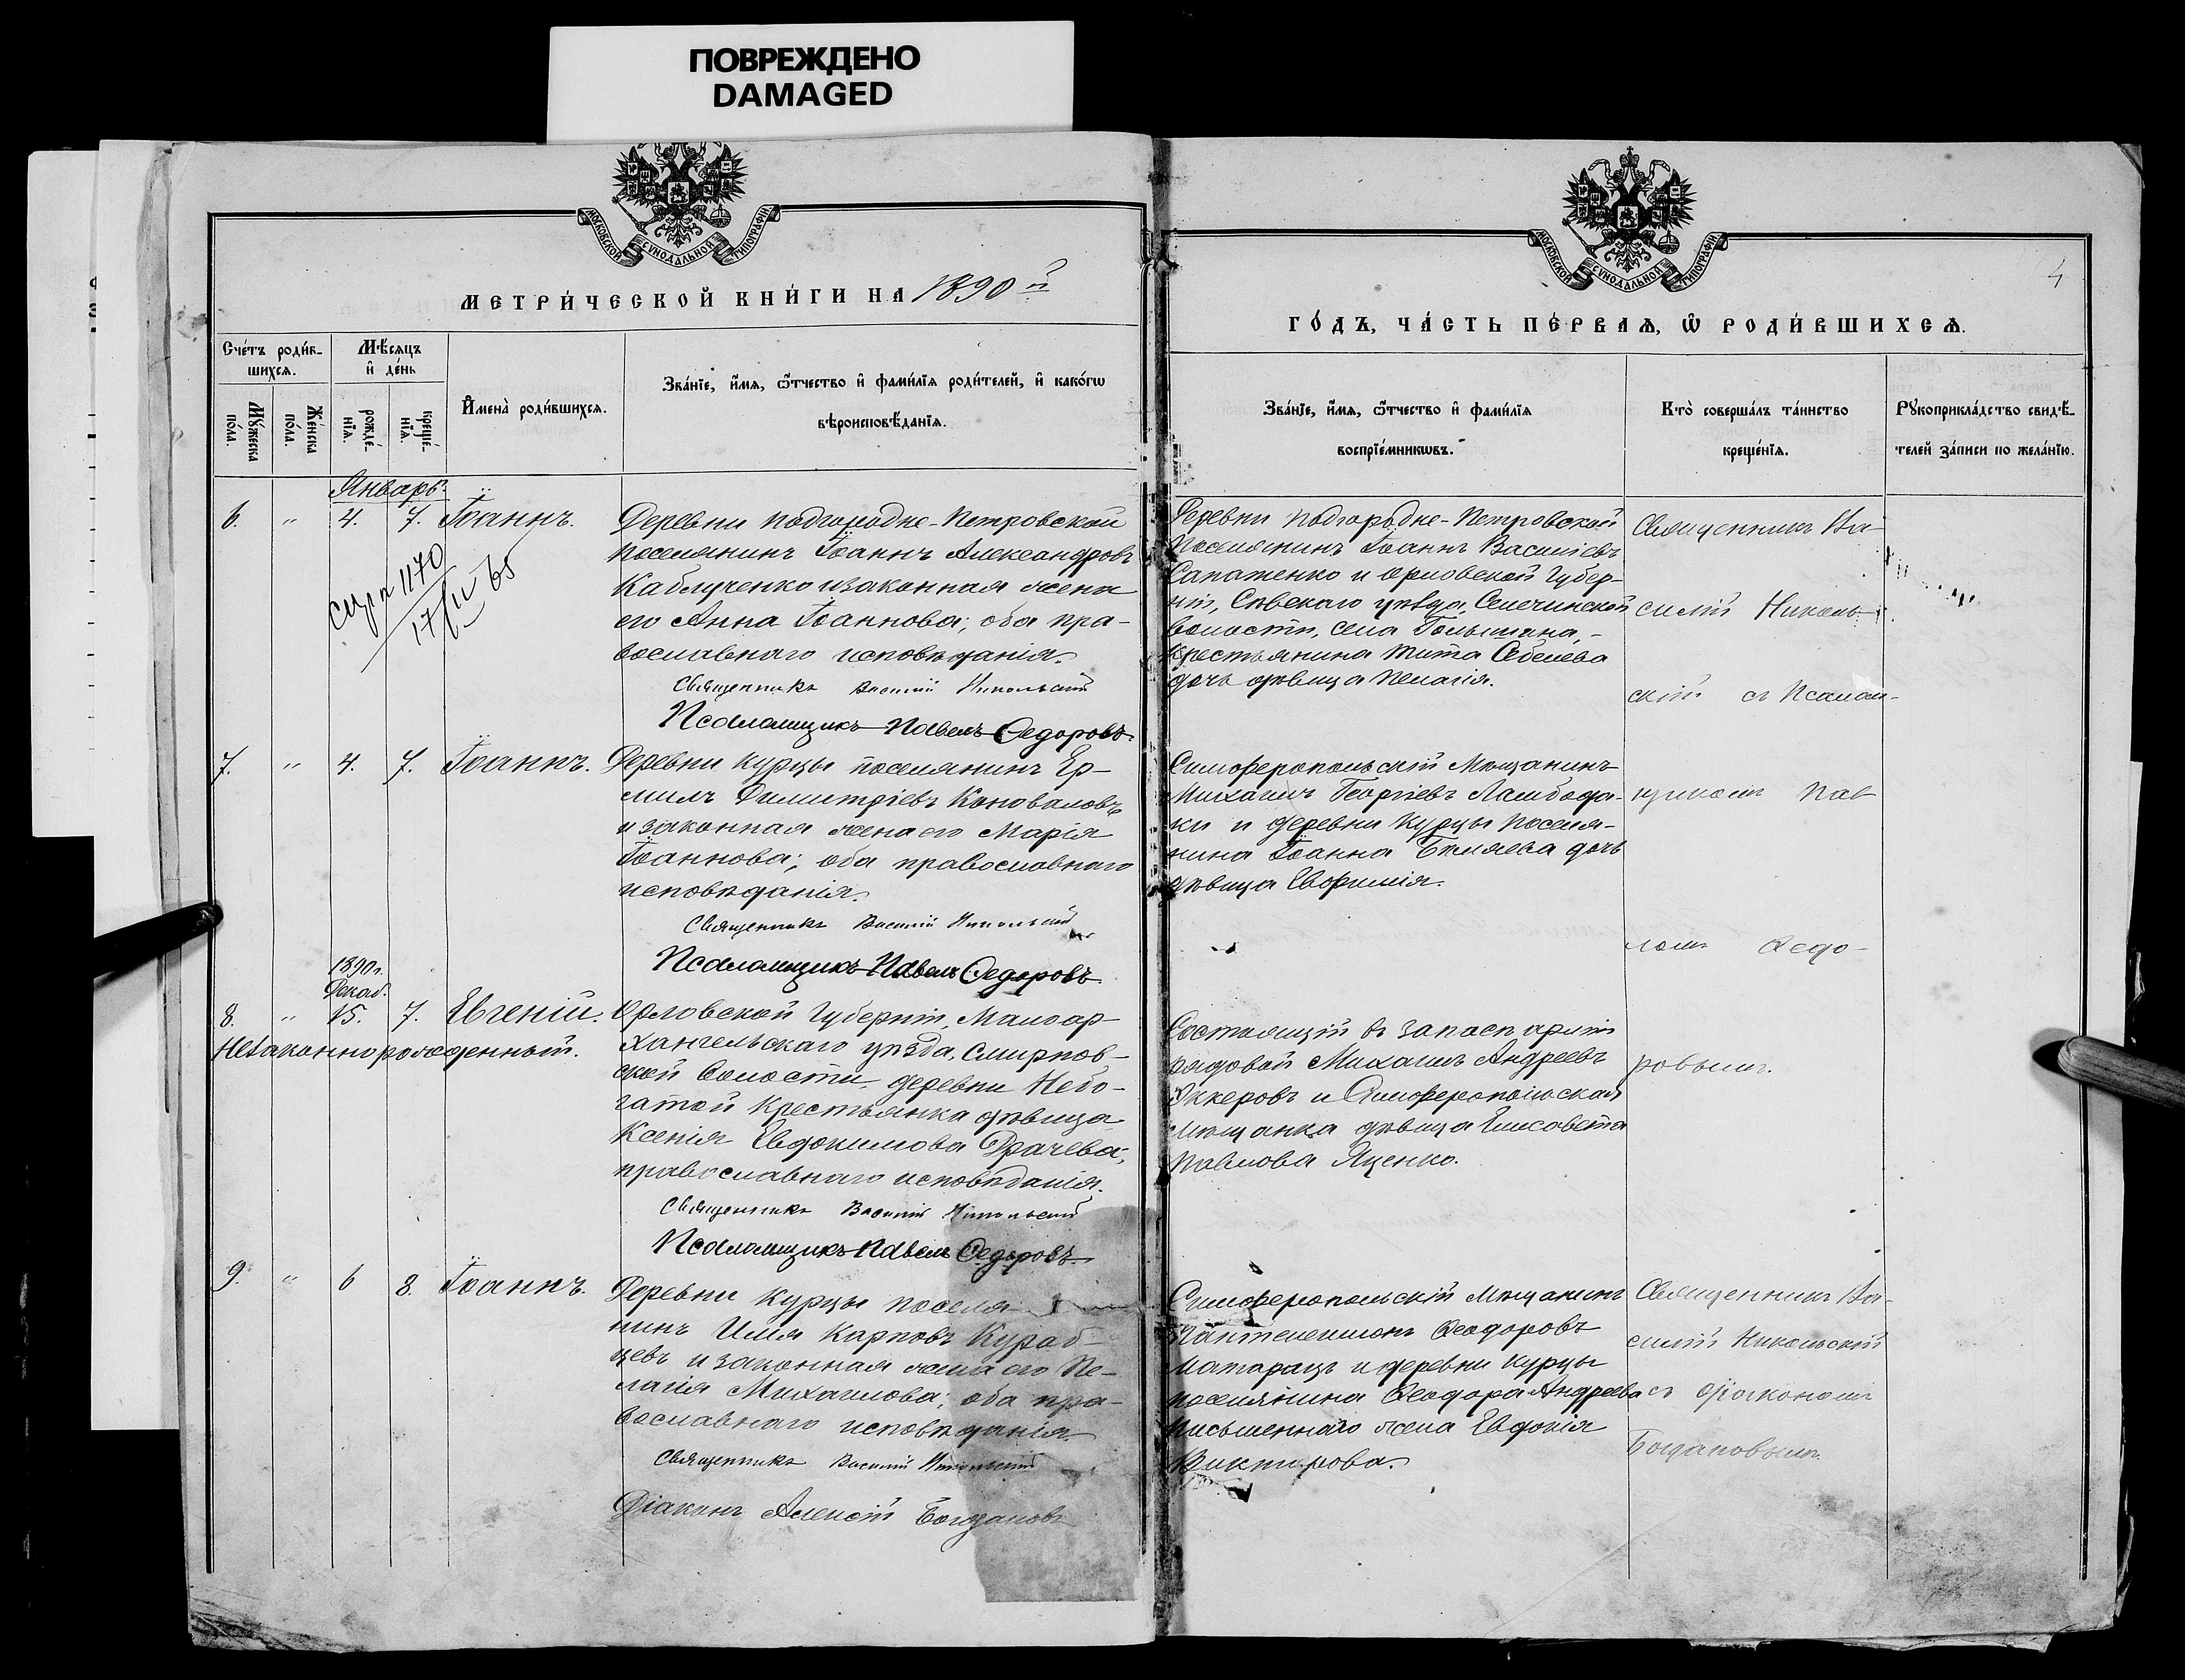 ПОВРЕЖДЕНО
DAMAGED
МОСКОВСКОЙ СѴНОДАЛЬНОЙ ТИПОГРАФІИ
МЕТРИ́ЧЕСКОЙ КНИ́ГИ НА 1890й
Сче́тъ роди́в-
шихся.
Мѣ́сяцъ
и҆ де́нь
Мꙋ́жеска
по́ла.
Же́нска
по́ла.
рожде́-
нїѧ.
креще́-
нїѧ.
И҆мена̀ роди́вшихсѧ.
Зва́нїе, и҆́мѧ, ѻ҆́тчество и҆ фами́лїѧ роди́телей, и҆ како́гѡ
вѣроисповѣ́данїѧ.
Январь.
6. " 4. 7. Іоаннъ.
1170
17/II 65
Деревни Подгородне-Петровской
поселянинъ Іоаннъ Александровъ
Каблученко и законная жена
его Анна Іоаннова; оба пра-
вославнаго исповѣданія.
Священникъ Василій Никольскій
Псаломщикъ Павелъ Ѳедоровъ.
7. " 4. 7. Іоаннъ.
Деревни Курцы поселянинъ Ер-
милъ Димитріевъ Коноваловъ
и законная жена его Марія
Іоаннова; оба православнаго
исповѣданія.
Священникъ Василій Никольскій
Псаломщикъ Павелъ Ѳедоровъ.
1890г.
Декаб.
8. " 15. 7. Евгеній.
Незаконнорожденный.
Орловской Губерніи, Малоар-
хангельскаго уѣзда, Смирнов-
ской волости деревни Небо-
гатой крестьянка дѣвица
Ксенія Евдокимова Драчева;
православнаго исповѣданія.
Священникъ Василій Никольскій
Псаломщикъ Павелъ Ѳедоровъ.
9. " 6 8. Іоаннъ.
Деревни Курцы поселя-
нинъ Илія Карповъ Кураб-
цевъ и законная жена его Пе-
лагія Михаилова; оба пра-
вославнаго исповѣданія.
Священникъ Василій Никольскій
Діаконъ Алексій Богдановъ
МОСКОВСКОЙ СѴНОДАЛЬНОЙ ТИПОГРАФІИ
4
ГО́ДЪ, ЧА́СТЬ ПЕ́РВАѦ, Ѡ҆ РОДИ́ВШИХСѦ.
Зва́нїе, и҆́мѧ, ѻ҆́тчество и҆ фами́лїѧ
воспрїе́мникѡвъ.
Кто̀ соверша́лъ та́инство
креще́нїѧ.
Рꙋкоприкла́дство свидѣ́-
телей за́писи по жела́нїю.
Деревни Подгородне-Петровской
поселянинъ Іоаннъ Васильевъ
Сапатенко и Орловской Губер-
ніи, Сѣвскаго уѣзда, Селечинской
волости, села
крестьянина Тита
дочь дѣвица Пелагія.
Симферопольскій Мѣщанинъ
Михаилъ Георгіевъ Ламбода-
ки и деревни Курцы поселя-
нина Іоанна Бѣляева дочь
дѣвица Евфимія.
Состоящій въ запасѣ арміи
рядовой Михаилъ Андреевъ
Эккеровъ и Симферопольская
мѣщанка дѣвица Елисавета
Павлова Яценко.
Симферопольскій Мѣщанинъ
Пантелеимонъ Ѳеодоровъ
Матарацъ и деревни Курцы
поселянина Ѳеодора Андреева
Письменнаго жена Евдокія
Викторова.
Священникъ Ва-
силій Николь-
скій съ Псалом-
щикомъ Пав-
ломъ Ѳедо-
ровымъ.
Священникъ Ва-
силій Никольскій
съ діакономъ
Богдановымъ.